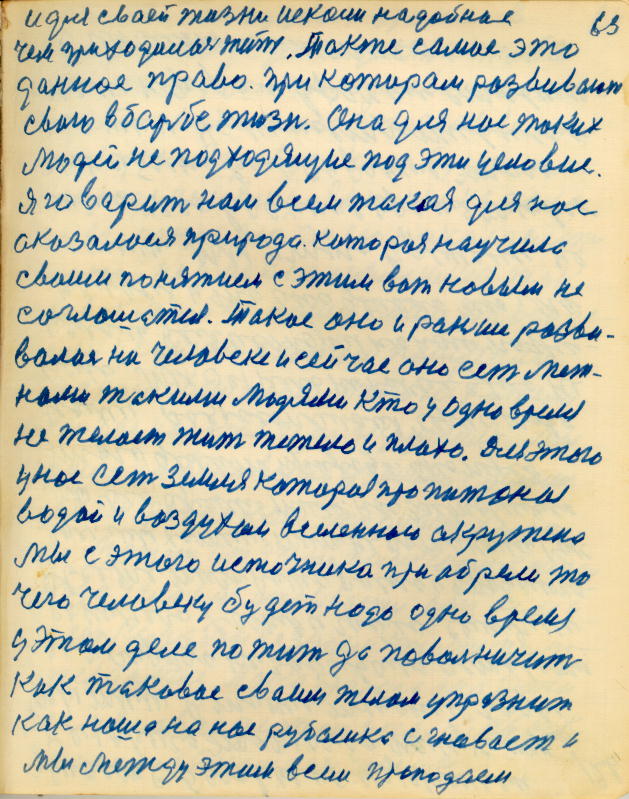 63
и для своей жизни искали надобное
чем приходилося жить. Такте самое это
данное право. При котором развивают
свою в борбе жизн. Она для нас таких
людей не подходящие под эти условие.
Я говарит нам всем такая для нас
оказалося природа. Которая научила
своим понятием с этим вот новым не
соглошатся. Такое оно и ранше розви-
валося на человеке и сейчас оно ест меж-
нами такими людями кто у одно время
не желает жит тежело и плахо. Для этого
у нас ест земля которая пропитоная
водой и воздухом вселенною окружена
мы с этого источника приобрели то
чего человеку будет надо одно время
у этом деле пожит да поволничит
как таковое своим телом упразнит
как наша на нас рубашка сгнивает и
мы между этим всем проподаем